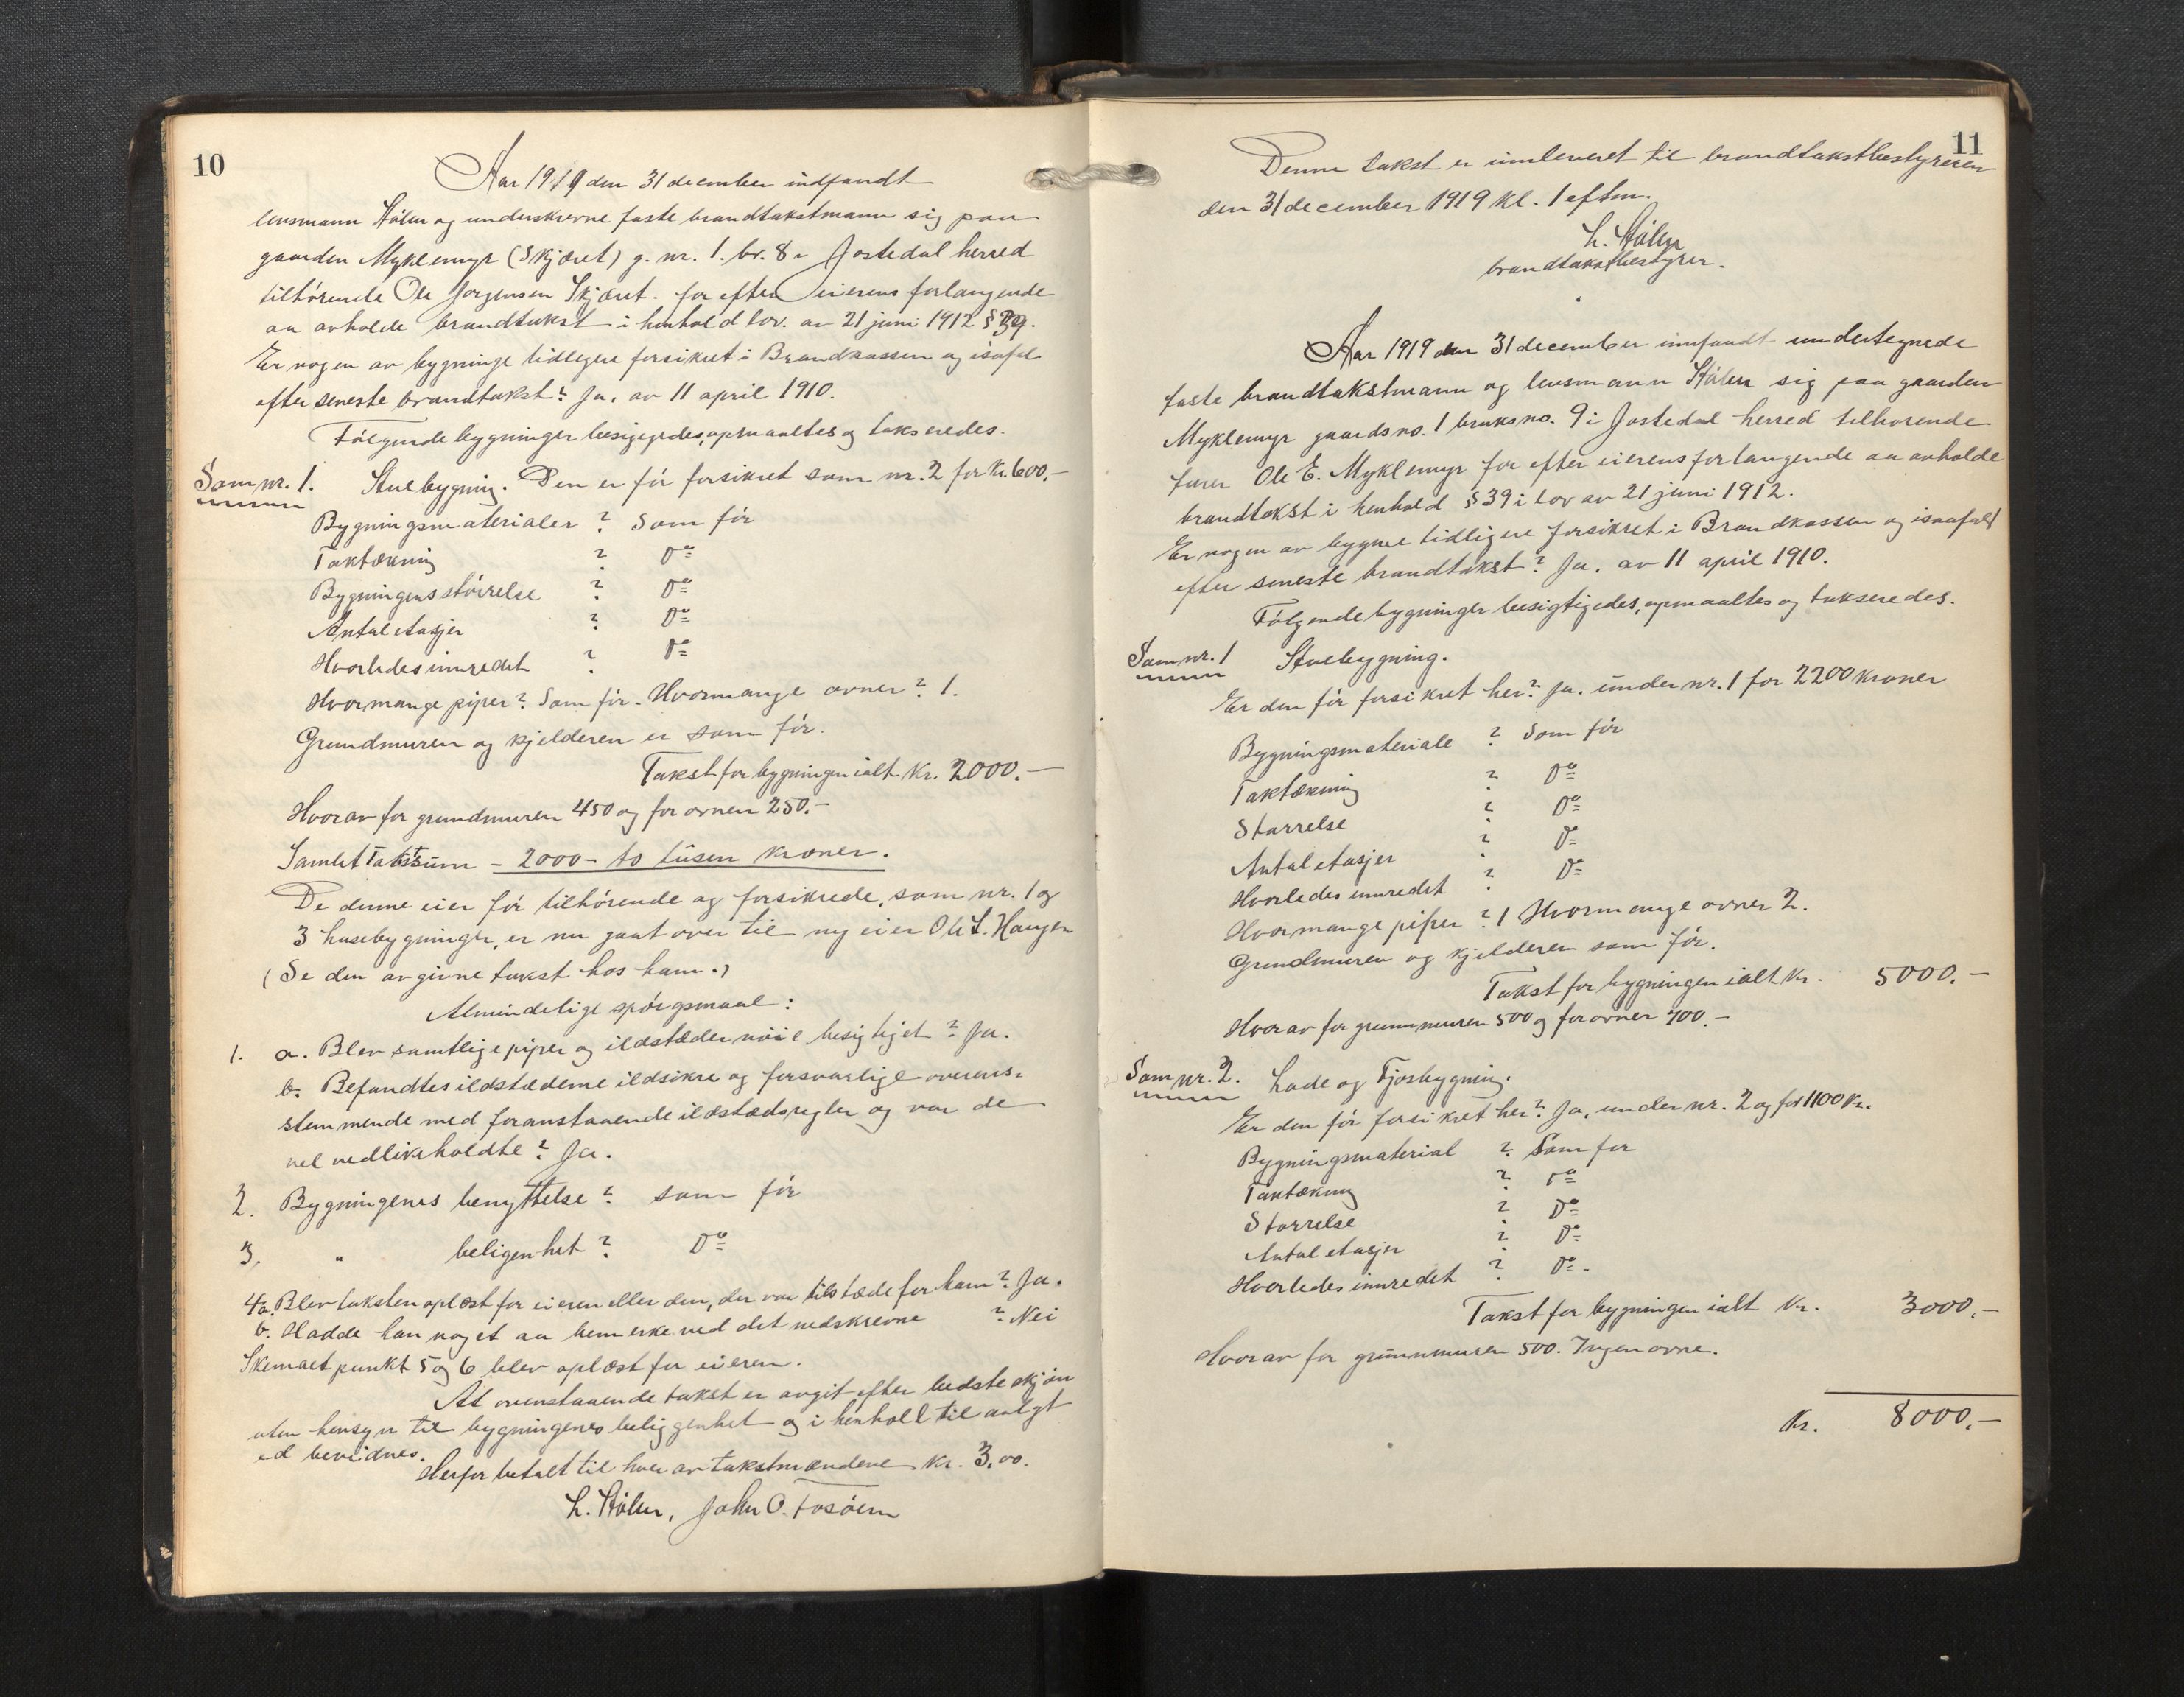 10
Aar 1919 den 31 december indfandt
lensmann Stølen og underskrevne faste brandtakstmann sig paa
gaarden Myklemyr (Skjæret) g. nr. 1. br. 8 i Jostedal herred
tilhørende Ole Jørgensen Skjæret. for efter eierens forlangende
aa avholde brandtakst i henhold lov. av 21 juni 1912 § 39.
Er nogen av bygninge tidligere forsikret i Brandkassen og isafal
efter seneste brandtakst? Ja, av 11 april 1910.
Følgende bygninger besigegedes, opmaaltes og takseredes.
Som nr. 1. Stuebygning. Den er før forsikret som nr. 2 for Kr. 600.-
Bygningsmaterialer ? Som før
Taktækning ? Do
Bygningens størrelse ? Do
Antal etasjer ? Do
Hvorledes innredet ? Do
Hvormange piper? Som før. Hvormange ovner? 1.
Grundmuren og kjelderen er som før.
Takst for bygningen ialt Kr. 2000.-
Hvorav for grundmuren 450 og for ovnen 250.-
Samlet Takstsum - 2000 - to tusen kroner.
De denne eier før tilhørende og forsikrede, som nr. 1 og
3 husebygninger, er nu gaat over til ny eier Ole L. Haugen
(Se den avgivne takst hos ham.)
Almindelige spørgsmaal:
1. a. Blev samtlige piper og ildstæder nøie besigtiget? Ja.
b. Befandtes ildstæderne ildsikre og forsvarlige overens-
stemmende med foranstaaende ildstædsregler og var de
vel vedlikeholdte? Ja.
2. Bygningenes benyttelse? som før
3. " beligenhet? Do
4a. Blev taksten oplæst for eieren eller den, der var tilstæde for ham? Ja.
b. Hadde han noget aa bemerke ved det nedskrevne ? Nei
Skemaet punkt 5 og 6 blev oplæst for eieren.
At ovenstaaende takst er avgit efter bedste skjøn
uten hensyn til bygningenes beliggenhet og i henhold til avlagt
ed bevidnes.
Herfor betalt til hver av takstmændene Kr. 3,00.
L. Stølen, John O. Fosøen
11
Denne takst er innleveret til brandtakstbestyreren
den 31 december 1919 kl. 1 eftm.
L. Stølen
brandtakstbestyrer.
Aar 1919 den 31 december innfandt undertegnede
faste brandtakstmann og lensmann Stølen sig paa gaarden
Myklemyr gaards no. 1 bruks no. 9 i Jostedal herred tilhorende
furer Ole E. Myklemyr for efter eierens forlangende aa avholde
brandtakst i henhold § 39 i lov av 21 juni 1912.
Er nogen av bygnne tidligere forsikret i Brandkassen og isaafald
efter seneste brandtakst? Ja. av 11 april 1910.
Følgende bygninger besigtigedes, opmaaltes og takseredes.
Som nr. 1 Stuebygning.
Er den før forsikret her? Ja. under nr. 1 for 2200 kroner
Bygningsmateriale ? Som før
Taktækning ? Do
Størrelse ? Do
Antal etasjer ? Do
Hvorledes innredet ? Do
Hvormange piper? 1 Hvormange ovner 2.
Grundmuren og kjelderen som før.
Takst for bygningen ialt Kr. 5000.-
Hvorav for grunnmuren 500 og for ovner 400.-
Som nr. 2. Lade og Fjosbygning.
Er den før forsikret her? Ja, under nr. 2 og for 1100 Kr.
Bygningsmaterial ? Som før
Taktækning ? Do
Størrelse ? Do
Antal etasjer ? Do
Hvorledes innredet ? Do.
Takst for bygningen ialt Kr. 3000.-
Hvorav for grunnmuren 500. Ingen ovne.
Kr. 8000.-